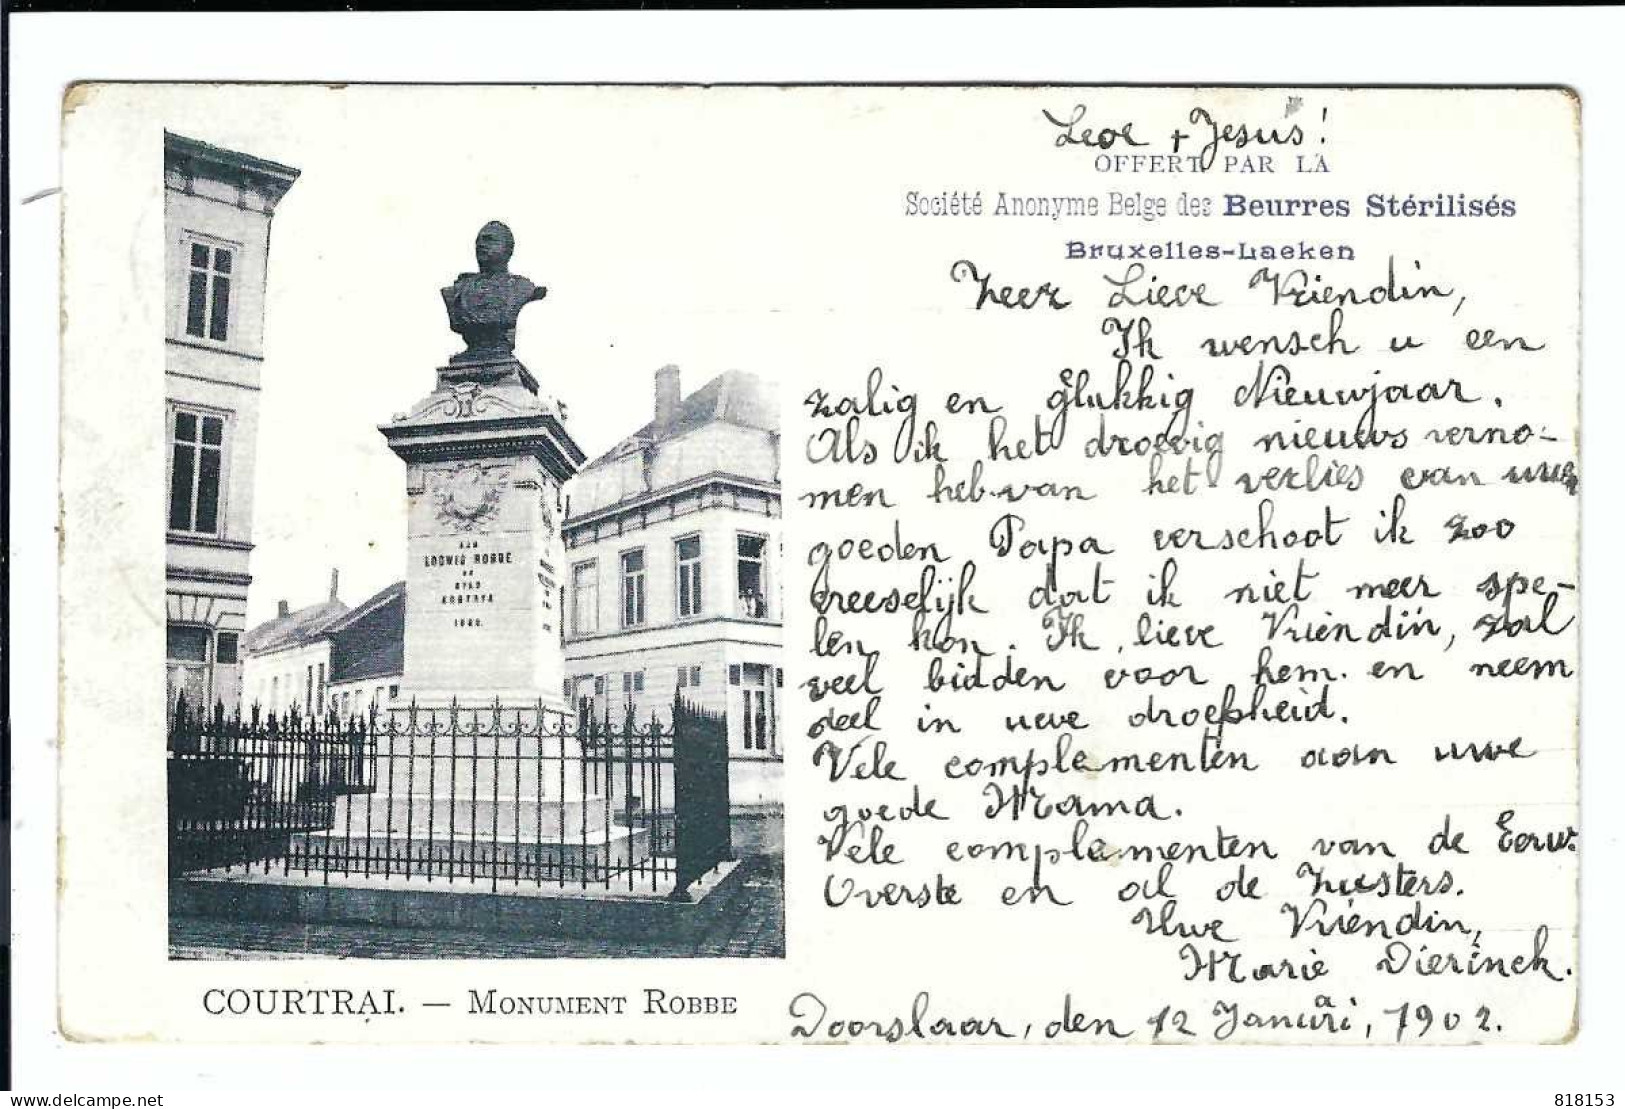 Leve + Jesus!
OFFERT PAR LA
Société Anonyme Belge des Beurres Stérilisés
Bruxelles-Laeken
Zeer Lieve Vriendin,
Ik wensch u een
zalig en gelukkig Nieuwjaar.
Als ik het droevig nieuws verno-
men heb van het verlies van uwen
goeden Papa verschoot ik zoo
vreeselijk dat ik niet meer spe-
len kon. Ik, lieve Vriendin, zal
veel bidden voor hem. en neem
deel in uwe droefheid.
Vele complementen aan uwe
goede Mama.
Vele complementen van de Eerw.
Overste en al de Zusters.
Uwe Vriendin,
Marie Dierinck.
Doorslaar, den 12 Januari, 1902.
AAN
LODWIG ROBBE
DE
STAD
KORTRYK
COURTRAI. — MONUMENT ROBBE
www.delcampe.net
philantica
818153